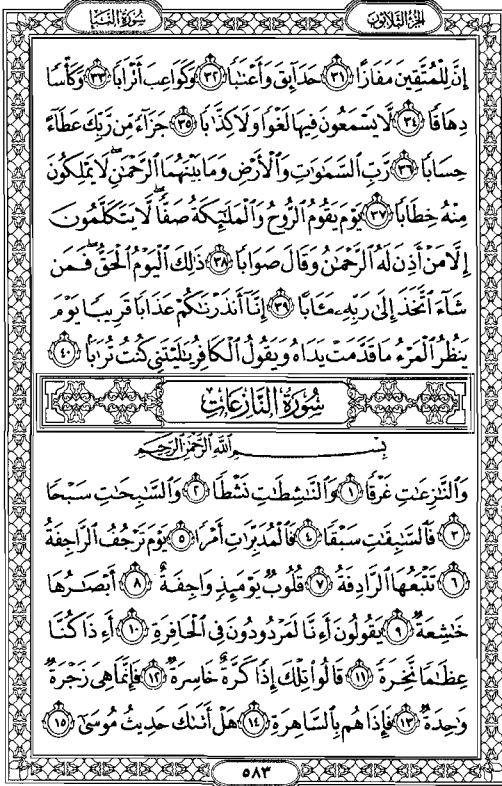 سُورَةُ النَّبَإِ
الجُزءُ الثَّلَاثُونَ
إِنَّ لِلْمُتَّقِينَ مَفَازًا ٣١ حَدَآئِقَ وَأَعْنَٰبًا ٣٢ وَكَوَاعِبَ أَتْرَابًا ٣٣ وَكَأْسًا
دِهَاقًا ٣٤ لَّا يَسْمَعُونَ فِيهَا لَغْوًا وَلَا كِذَّٰبًا ٣٥ جَزَآءً مِّن رَّبِّكَ عَطَآءً
حِسَابًا ٣٦ رَّبِّ السَّمَٰوَٰتِ وَالْأَرْضِ وَمَا بَيْنَهُمَا الرَّحْمَٰنِ ۖ لَا يَمْلِكُونَ
مِنْهُ خِطَابًا ٣٧ يَوْمَ يَقُومُ الرُّوحُ وَالْمَلَٰٓئِكَةُ صَفًّا ۖ لَّا يَتَكَلَّمُونَ
إِلَّا مَنْ أَذِنَ لَهُ الرَّحْمَٰنُ وَقَالَ صَوَابًا ٣٨ ذَٰلِكَ الْيَوْمُ الْحَقُّ ۖ فَمَن
شَآءَ اتَّخَذَ إِلَىٰ رَبِّهِۦ مَـَٔابًا ٣٩ إِنَّآ أَنذَرْنَٰكُمْ عَذَابًا قَرِيبًا يَوْمَ
يَنظُرُ الْمَرْءُ مَا قَدَّمَتْ يَدَاهُ وَيَقُولُ الْكَافِرُ يَٰلَيْتَنِى كُنتُ تُرَٰبًا ٤٠
سُورَةُ النَّازِعَاتِ
بِسْمِ اللَّهِ الرَّحْمَٰنِ الرَّحِيمِ
وَالنَّٰزِعَٰتِ غَرْقًا ١ وَالنَّٰشِطَٰتِ نَشْطًا ٢ وَالسَّٰبِحَٰتِ سَبْحًا
٣ فَالسَّٰبِقَٰتِ سَبْقًا ٤ فَالْمُدَبِّرَٰتِ أَمْرًا ٥ يَوْمَ تَرْجُفُ الرَّاجِفَةُ
٦ تَتْبَعُهَا الرَّادِفَةُ ٧ قُلُوبٌ يَوْمَئِذٍ وَاجِفَةٌ ٨ أَبْصَٰرُهَا
خَٰشِعَةٌ ٩ يَقُولُونَ أَءِنَّا لَمَرْدُودُونَ فِى الْحَافِرَةِ ١٠ أَءِذَا كُنَّا
عِظَٰمًا نَّخِرَةً ١١ قَالُوا۟ تِلْكَ إِذًا كَرَّةٌ خَاسِرَةٌ ١٢ فَإِنَّمَا هِىَ زَجْرَةٌ
وَٰحِدَةٌ ١٣ فَإِذَا هُم بِالسَّاهِرَةِ ١٤ هَلْ أَتَىٰكَ حَدِيثُ مُوسَىٰٓ ١٥
٥٨٣